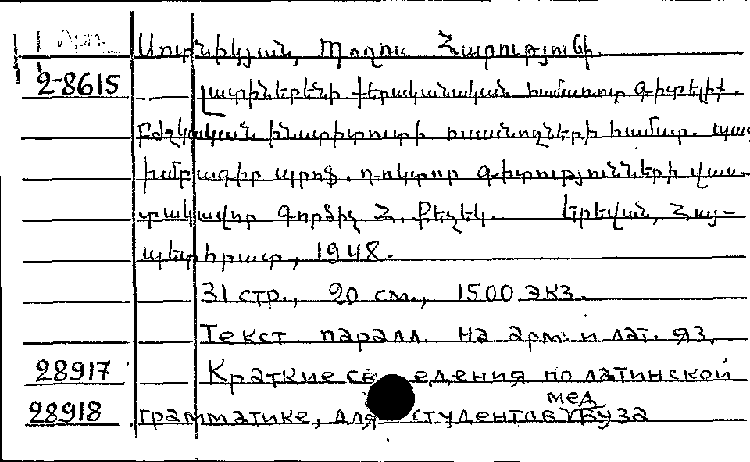 Арм.
2-8615
Սուքիասյան, Պողոս Հարությունի.
Լատիներենի քերականական համառոտ գիտելիք.
Բժշկական ինստիտուտի ուսանողների համար. պատ.
խմբագիր պրոֆ. դոկտոր գիտությունների վաս-
տակավոր գործիչ Հ. Երևան, Հայ-
պետհրատ, 1948.
31 стр., 20 см., 1500 экз.
Текст паралл. на арм. и лат. яз.
28917 Краткие сведения по латинской
28918 грамматике, для студентов мед вуза